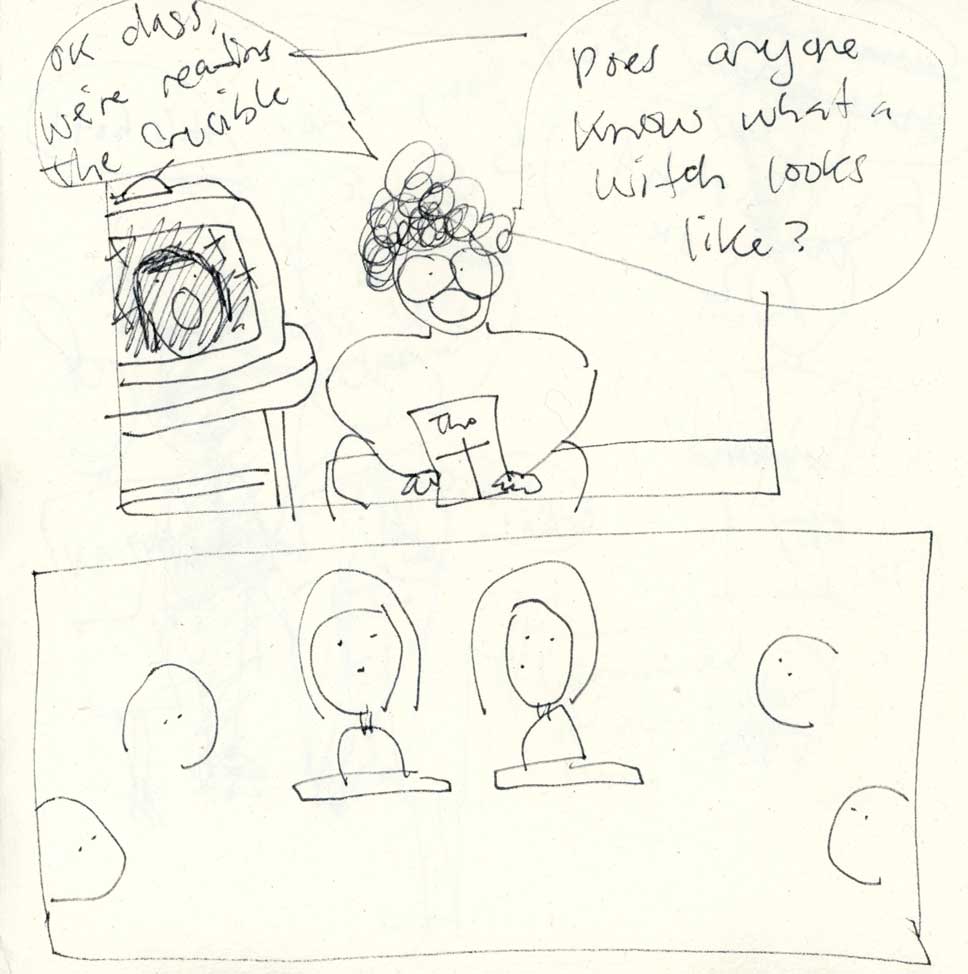 ok class,
we're reading
the crucible
Does anyone
know what a
witch looks
like?
The